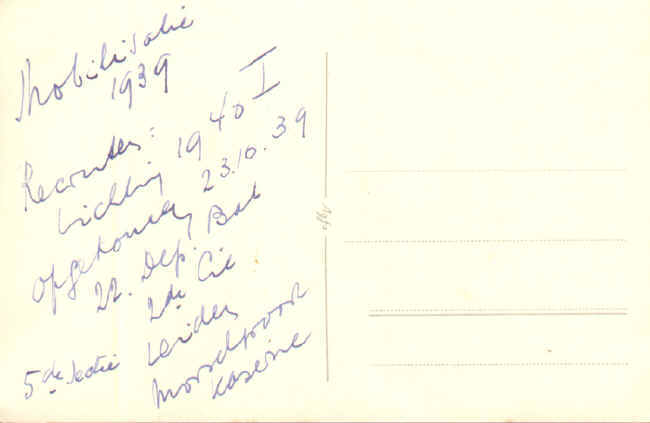 Mobilisatie
1939
Recruten:
Lichting 1940 I
opgekomen 23.10.39
22. Dep. Bat
2de Cie
5de sectie Leiden
Morschpoort
kaserne